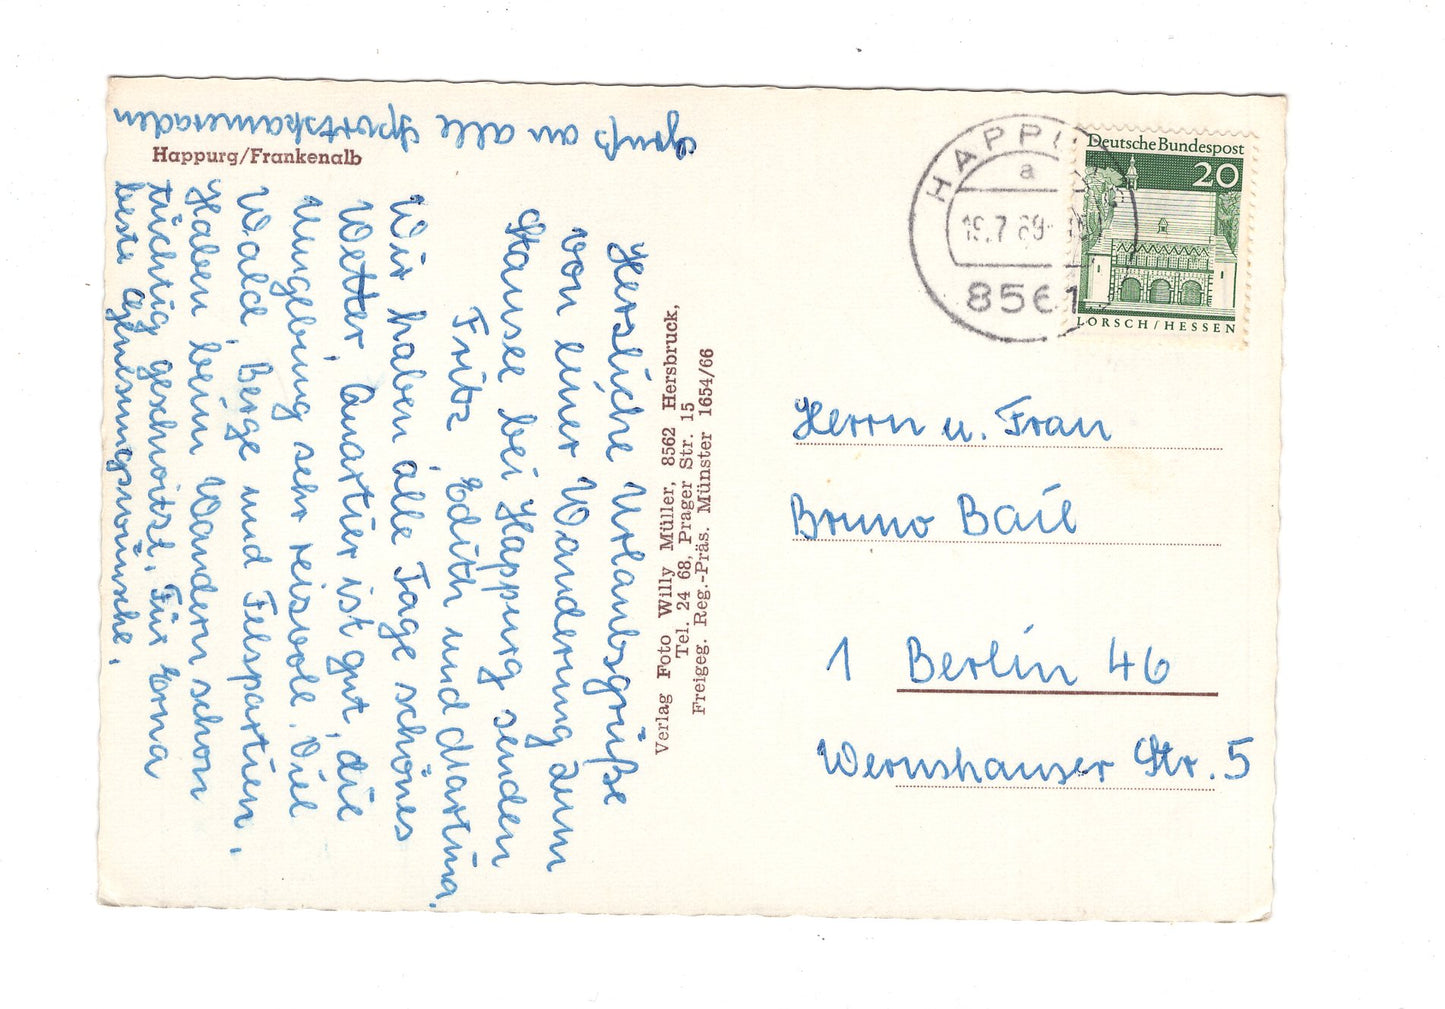 Gruß an alle Sportskameraden
Happurg/Frankenalb
Herzliche Urlaubsgrüße
von einer Wanderung zum
Stausee bei Happurg senden
Fritz, Edith und Martina.
Wir haben alle Tage schönes
Wetter, Quartier ist gut, die
Umgebung sehr reizvoll. Viel
Wald, Berge und Felspartien.
Haben beim Wandern schon
tüchtig geschwitzt. Für Erna
beste Genesungswünsche.
Verlag Foto Willy Müller, 8562 Hersbruck,
Tel. 24 68, Prager Str. 15
Freigeg. Reg.-Präs. Münster 1654/66
HAPPU
a
19.7.69
8561
Deutsche Bundespost
20
LORSCH/HESSEN
Herrn u. Frau
Bruno Bail
1 Berlin 46
Wernshauser Str. 5